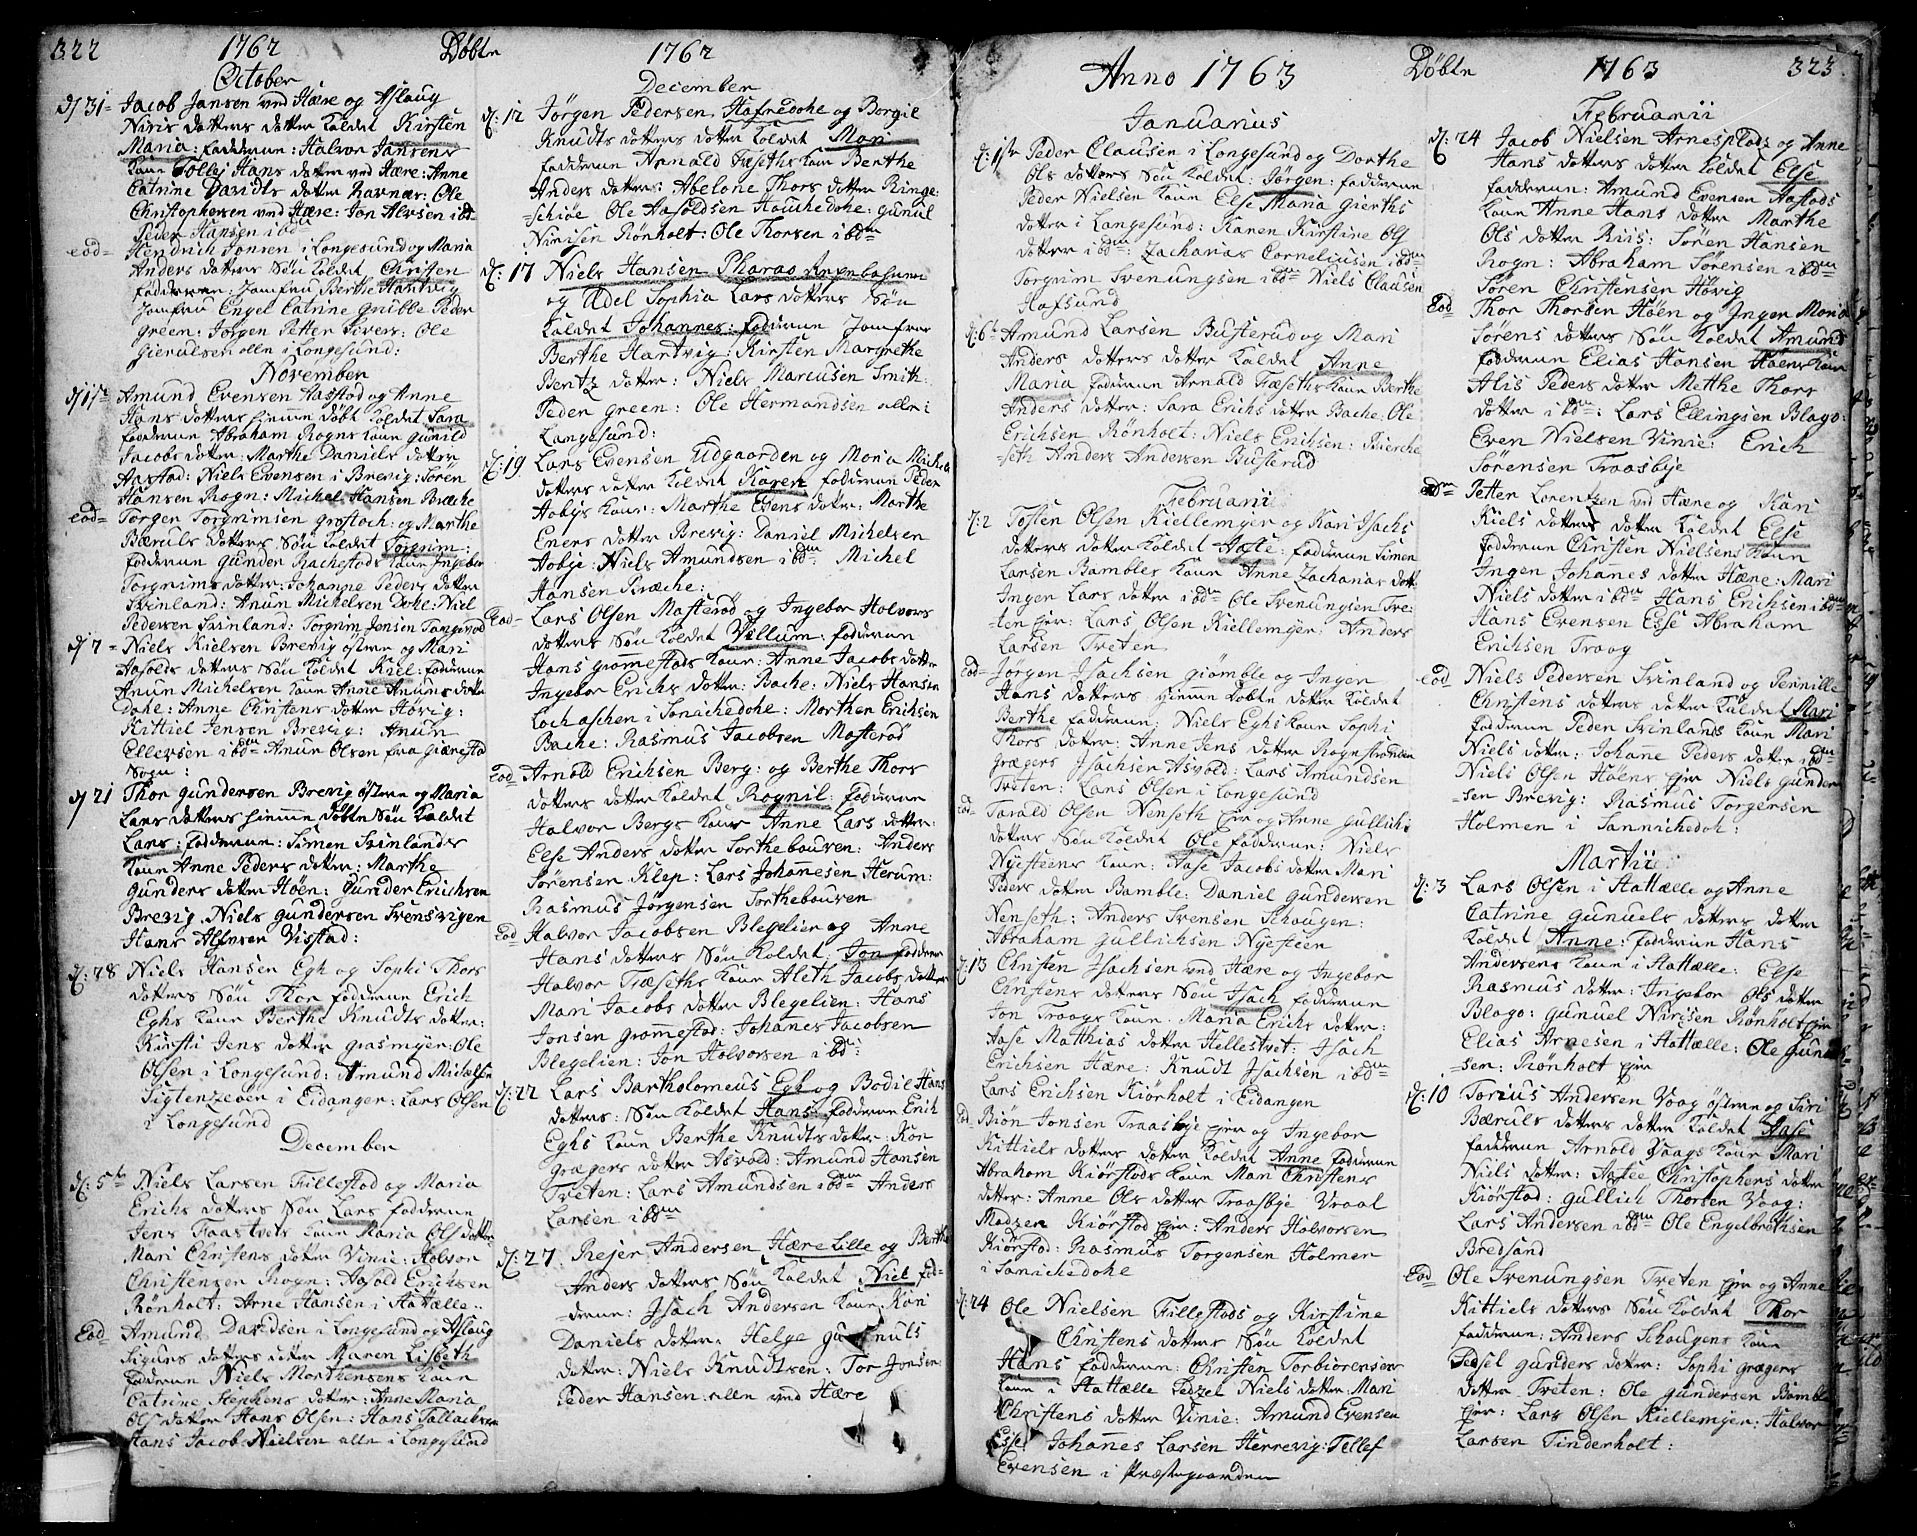 322 1762 Döbte
October
d/31 Jacob Jansen ved Hære og Aslaug
Niris dotters dotter Kaldet Kirsten
Maria: fadderne: Halvor Jansens
Kone Tolley Hans dotter ved Hære: Anne
Catrine Davidts dotter Ravnær: Ole
Christophersen ved Hære: Jon Alvsen ibd
Peder Hansen i bdm
eod Hendrich Jonsen i Longesund og Maria
Anders dotters Söu Kaldet Christen
fadderne: Jomfru Berthe Hartvig
Jomfru Engel Catrine Gribbe Peder
Green: Jörgen Petter Sivers: Ole
Gierulsen alle i Longesund:
November
d/1ste Amund Evensen Aastad og Anne
Hans dotters hiemme döbt Kaldet Sara
fadderne Abraham Rogns Kone Gunild
Jacobs dotter: Marthe Daniels dotter
Aastad: Niels Evensen i Brevig: Sören
Hansen Rogn: Michel Hansen Kræche
eod Torgen Torgrimsen Grostoch: og Marthe
Bæruls dotters Söu Kaldet Torgrim:
fadderne Gunder Rachestads Kone Ingebor
Torgrims dotter: Johanne Peders dotter
Svinland: Anun Michelsen Dohe: Niel
Pedersen Svinland: Torgrim Jonsen Tangvald
d/7 Niels Kielsen Brevig östre og Mari
Aasolds dotters Söu Kaldet Kiel: fadderne
Anun Michelsen Kone Anne Anuns dotter
Dohe: Anne Christens dotter Hövig:
Kittiel Jensen Brevig: Anun
Ellevsen i bdm Amun Olsen fra Giærestad
Sogn:
d/21 Thor Gundersen Brevig östre og Maria
Lars dotters hiemme Döbte Söu Kaldet
Lars: fadderne: Simen Svinlands
Kone Anne Peders dotter: Marthe
Gunders dotter Höen: Gunder Erichsen
Brevig. Niels Gundersen Svensvigen
Hans Alfvsen Vistad:
d: 28 Niels Hansen Egh og Sophi Thors
dotters Söu Thor fadderne Erich
Eghs Kone Berthe Knudts dotter:
Kirsti Jens dotter Grasmyer: Ole
Olsen i Longesund: Amund
i Eidanger: Lars Olsen
i Longesund
December
d: 5te Niels Larsen Fillestad og Maria
Erichs dotters Söu Lars fadderne
Jens Traatvets Kone Maria Ols dotter
Mari Christens dotter Vinie: Halvor
Christensen Rogn: Aasold Erichsen
Rönholt: Arne Hansen i Hattælle:
Eod Amund Davidsen i Longesund og Aslaug
Sigurs dotters dotter Maren Lisbeth
fadderne Niels Morthensens Kone
Catrine Stephens dotter: Anne Maria
Ols dotter Hans Olsen: Hans Tallachsen
Hans Jacob Nielsen alle i Longesund
1762
December
d: 12 Jörgen Pedersen Hafredohe og Borgil
Knudts dotters dotter Kaldet Mari
fadderne Arnald Fæseths Kone Berthe
Anders dotter: Abelone Thors dotter Ringe-
-schiöe Ole Aasoldsen Houchedohe: Gunil
Nirisen Rönholt: Ole Thorsen i bdm
d: 17 Niels Hansen Pharao
og Adel Sophia Lars dotters Söu
Kaldet Johannes: fadderne Jomfrue
Berthe Hartvig: Kirsten Margrethe
Bentz dotter: Niels Marcusen Smith:
Peder Green: Ole Hermandsen alle i
Langesund:
d: 19 Lars Evensen Udgaarden og Maria Michels
dotters dotter Kaldet Karen fadderne Peder
Aabys Kone: Marthe Evens dotter: Marthe
Eners dotter Brevig: Daniel Michelsen
Aobye: Niels Amundsen i bdm Michel
Hansen Kræche:
Eod Lars Olsen Masteröd og Ingebor Halvors
dotters Söu Kaldet Vellum: fadderne
Hans Gromestads Kone: Anne Jacobs dotter
Ingebor Erichs dotter: Bache: Niels Hansen
Lochaschen i Sanichedohe: Morthen Erichsen
Bache: Rasmus Jacobsen Masteröd
Eod Arnold Erichsen Berg: og Berthe Thors
dotters dotter Kaldet Rognil: fadderne
Halvor Bergs Kone Anne Lars dotter:
Else Anders dotter Sorthebouren: Anders
Sörensen Klep: Lars Johannesen Herum:
Rasmus Jörgensen Sorthebouren
Eod Halvor Jacobsen Blegelier og Anne
Hans dotters Söu Kaldet: Jon fadderne
Halvor Træseths Kone Aleth Jacobs dotter
Mari Jacobs dotter Blegelien: Hans
Jonsen Gromestad: Johanes Jacobsen
Blegelien: Jon Halvorsen i bd:
d: 22 Lars Bartholomeus Egh og Bodil Hans
dotters: Söu Kaldet Hans: fadderne Erich
Eghs Kone Berthe Knudts dotter: Kari
Grægers dotter Asvold: Amund Hansen
Treten: Lars Amundsen i bdm Anders
Larsen i bdm
d: 27 Rejer Andersen Hære Lille og Berthe
Anders dotters Söu Kaldet Niel fad-
derne: Jsach Andersen Kone Kari
Daniels dotter: Helge Gunnuls
dotter: Niels Knudtsen: Tor Jonsen:
Peder Hansen alle ved Hære
Anno 1763 Döbte 1763 323
Januarius
d: 1ste Peder Clausen i Longesund og Dorthe
Ols dotters Söu Kaldet: Jörgen: fadderne
Peder Nielsen Kone Else Maria Gierths
dotter i Langesund: Karen Kirstine Ols
dotter i bdm: Zacharias Corneliusen i bdm
Torgrim Svenungsen i bdm Niels Clausen
Hafsund
d: 6te Amund Larsen Busterud og Mari
Anders dotters dotter Kaldet Anne
Maria fadderne Arnald Fæseths Kone Berthe
Anders dotter: Sara Erichs dotter Bache: Ole
Erichsen Rönholt: Niels Erichsen: Kierche
-seth Anders Andersen Busterud
Februarii
d: 2 Tosten Olsen Kiellemyer og Kari Jsachs
dotters dotter Kaldet Aaste: fadderne Simen
Larsen Bambles Kone Anne Zacharias dott
Inger Lars dotter i bdm Ole Svenungsen Tre-
ten eier: Lars Olsen Kiellemyer: Anders
Larsen Treten
eod Jörgen Jsachsen Giömble og Inger
Hans dotters hiemme Döbte dotter Kaldet
Berthe fadderne: Niels Eghs Kone Sophi
Thors dotter: Anne Jens dotter Rognstranden
Grægers Jsachsen Asvold: Lars Amundsen
Treten: Lars Olsen i Longesund
eod Tarald Olsen Nenseth eier og Anne Gullichs
dotters Söu Kaldet Ole fadderne: Niels
Nyesteens Kone: Aase Jacobs dotter Mari
Peders dotter Bamble: Daniel Gundersen
Nenseth: Anders Svensen Schougen:
Abraham Gullichsen Nyesteen
d: 13 Christen Jsachsen ved Hære og Ingebor
Christens dotters Söu Jsach fadderne
Jon Traags Kone Maria Erichs dotter:
Aase Matthias dotter Hellestvet: Jsach
Erichsen Hære: Knudt Jsachsen i bdm
Lars Erichsen Kiörholt i Eidangen
Eod Biön Jonsen Traasbye eier og Ingebor
Kittiels dotters dotter Kaldet Anne fadderne
Abraham Kiörstads Kone Mari Christens
dotter: Anne Ols dotter Traasbye Vraal
Madzen Kiörstad eier: Anders Halvorsen
Kiörstad: Rasmus Torgensen Holmen
i Sanichedohe
d: 24 Ole Nielsen Fillestads og Kirstine
Christens dotters Söu Kaldet
Hans fadderne: Christen Torbiörensens
Kone i Hattælle Sidzel Niels dotter: Mari
Christens dotter Vinie: Amund Evensen
Esse Johannes Larsen Herrevig: Tellef
Evensen i Præstegaarden
Februarii
d: 24 Jacob Nielsen Arnesplads og Anne
Hans dotters dotter Kaldet Else
fadderne: Amund Evensen Aastads
Kone Anne Hans dotter Marthe
Ols dotter Riis: Sören Hansen
Rogn: Abraham Sörensen i bdm
Sören Christensen Hövig
Eod Thor Thorsen Höen og Inger Maria
Sörens dotters Söu Kaldet Amund
fadderne Elias Hansen Höens Kone
Alis Peders dotter Metthe Thors
dotter i bdm: Lars Ellingsen Blago:
Even Nielsen Vinie: Erich
Sörensen Traasbye
eodm Petter Lorentzen ved Hære og Kari
Kiels dotters dotter Kaldet Else
fadderne Christen Nielsens Kone
Inger Johannes dotter Hære: Mari
Niels dotter i bdm Hans Erichsen i bdm
Hans Evensen Esse Abraham
Erichsen Traag
eod Niels Pedersen Svinland og Pernille
Christens dotters dotter Kaldet Mari
fadderne Peder Svinlands Kone Mari
Niels dotter: Johanne Peders dotter i bdm
Niels Olsen Höens eier Niels Gunder-
-sen Brevig: Rasmus Torgersen
Holmen i Sannichedoh:
Martii
d: 3 Lars Olsen i Hattælle og Anne
Catrine Gunuels dotters dotter
Kaldet Anne: fadderne Hans
Andersens Kone i Hattælle: Else
Rasmus dotter: Ingebor Ols dotter
Blago: Gunuel Nirisen Rönholt eier
Elias Arnesen i Hattælle: Ole Gunuel-
sen: Rönholt eier
d: 10 Torius Andersen Vaag östre og Siri
Bæruls dotters dotter Kaldet Aase
fadderne Arnold Vaags Kone Mari
Niels dotter: Aasee Christophers dotter
Kiörstad: Gullich Thorsen Vaag:
Lars Andersen i bdm Ole Engelbrethsen
Bredsand
Eod Ole Svenungsen Treten eier og Anne
Kittiels dotters Söu Kaldet Thor
fadderne: Anders Schougens Kone
Sidsel Gunders dotter: Sophi Grægers
dotter Treten: Ole Gundersen Bamble
eier: Lars Olsen Kiellemyer: Halvor
Larsen Tinderholt: